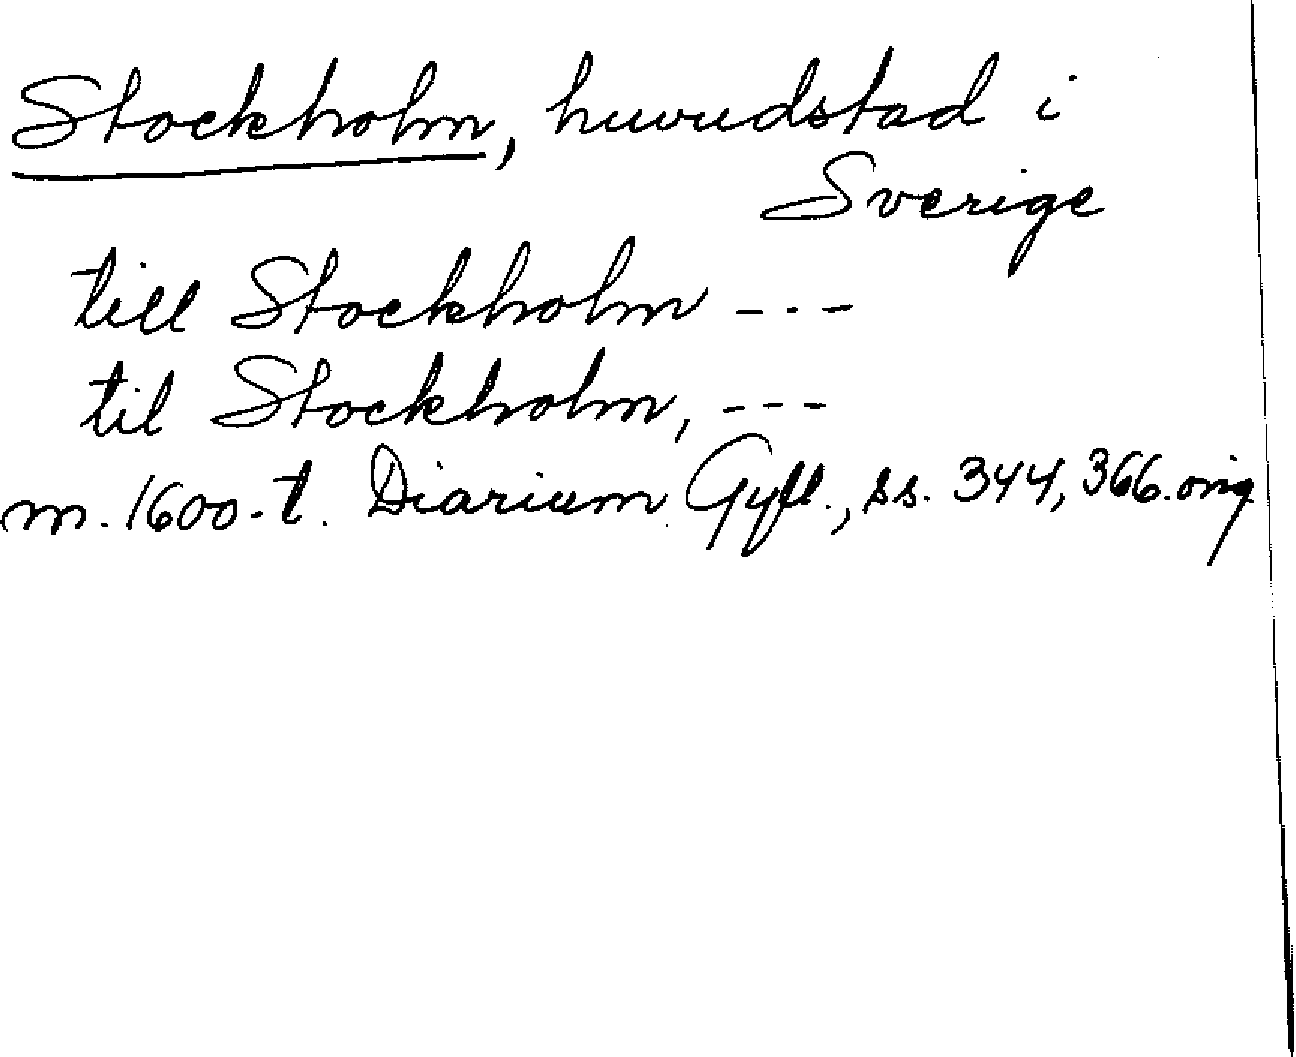 Stockholm, huvudstad i
Sverige
till Stockholm ---
til Stockholm, ---
m. 1600-t. Diarium Gyll., ss. 344, 366. orig